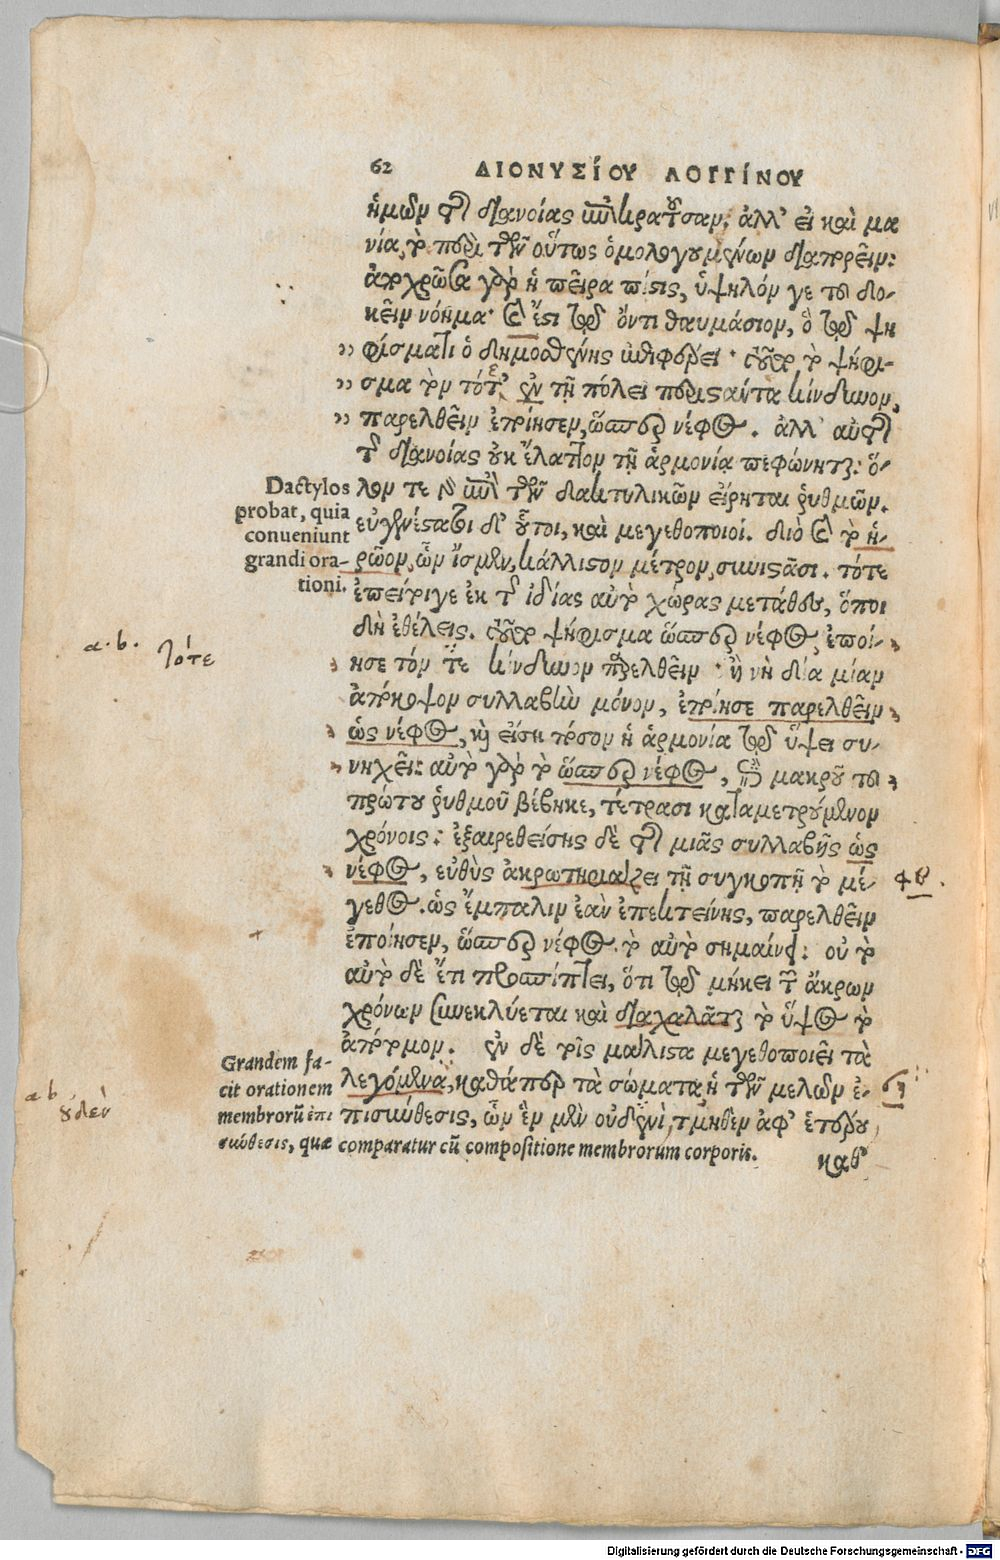 62 ΔΙΟΝΥΣΊΟΥ ΛΟΓΓΊΝΟΥ
ἡμῶν τῆς διανοίας ἐπικρατοῦσαν, ἀλλ' εἰ καὶ μα
νία τὸ περὶ τῶν οὕτως ὁμολογουμένων διαπορεῖν:
ἀποχρῶσα γὰρ ἡ πεῖρα πίςις, ὑψηλόν γε του δο-
κεῖν νόημα· καὶ ἔςι τῷ ὄντι θαυμάσιον, ὃ τῷ ψη
„ φίσματι ὁ δημοσθένης ἐπιφέρει· τοῦτο τὸ ψήφι-
„ σμα τὸν τότε, ἐν τῇ πόλει περιςάντα κίνδυνον,
„ παρελθεῖν ἐποίησεν, ὥσπερ νέφος. ἀλλ' αὐτῆς
τῆς διανοίας οὐκ ἔλαττον τῇ ἁρμονία πεφώνηται: ὅ-
λον τε γὰρ ἐπὶ τῶν δακτυλικῶν εἴρηται ῥυθμῶν.
εὐγενέςατοι δ' οὗτοι, καὶ μεγεθοποιοί. διὸ καὶ τὸ ἡ-
ρῶον, ὧν ἴσμεν, κάλλιςον μέτρον, συνιςᾶσι. τότε
ἐπείριγε ἐκ τῆς ἰδίας αὐτὸ χώρας μετάθες, ὅποι
δὴ ἐθέλεις. τοῦτο ψήφισμα ὥσπερ νέφος, ἐποί-
ησε τόν τότε κίνδυνον παρελθεῖν· ἢ νὴ δία μίαν
ἀπόκοψον συλλαβὴν μόνον, ἐποίησε παρελθεῖν
ὡς νέφος, καὶ εἴσῃ πόσον ἡ ἁρμονία τῷ ὕψει συ-
νηχεῖ: αὐτὸ γὰρ τὸ ὥσπερ νέφος, ἐπὶ μακροῦ του
πρώτου ῥυθμοῦ βέβηκε, τέτρασι καταμετρούμενον
χρόνοις: ἐξαιρεθείσης δὲ τῆς μιᾶς συλλαβῆς ὡς
νέφος, εὐθὺς ἀκρωτηριάζει τῇ συγκοπῇ τὸ μέ-
γεθος. ὡς ἔμπαλιν ἐὰν ἐπεκτείνης, παρελθεῖν
ἐποίησεν, ὥσπερ νέφος. τὸ αὐτὸ σημαίνει: οὐ τὸ
αὐτὸ δὲ ἔτι προσπίπτει, ὅτι τῷ μήκει τῶν ἄκρων
χρόνων συνεκλύεται καὶ διαχαλᾶται τὸ ὕψος τὸ
ἀπότομον. ἐν δὲ τοῖς μάλιςα μεγεθοποιεῖ τὰ
λεγόμενα, καθάπερ τὰ σώματα ἡ τῶν μελῶν ἐ-
πισύνθεσις, ὧν ἓν μὲν οὐδενὶ, τμηθὲν ἀφ' ἑτέρου,
καθ'
Dactylos
probat, quia
conueniunt
grandi ora-
tioni.
a. b. τότε
φβ.
Grandem fa-
cit orationem
membrorũ ἐπι
σύνθεσις, quæ comparatur cũ compositione membrorum corporis.
a b
ȣδὲν
Digitalisierung gefördert durch die Deutsche Forschungsgemeinschaft - DFG